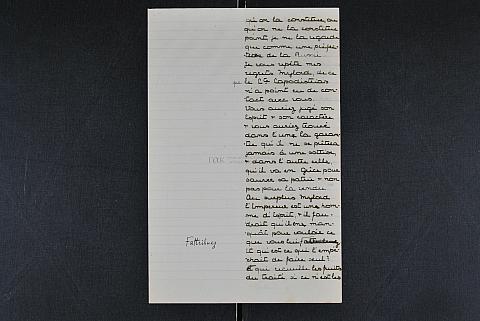 qu'on la constitue, ou
qu'on ne la constitue
point, je ne la regarde
que comme une préfec-
ture de la Russie.
Je vous répète mes
regrets Mylord, de ce
que le Cte Capodistrias
n'a point eu de con-
tact avec vous.
Vous auriez jugé son
esprit & son caractère
& vous auriez trouvé
dans l'un la garan-
tie qu'il ne se prêtera
jamais à une sottise,
& dans l'autre celle,
qu'il va en Grèce pour
sauver sa patrie & non
pas pour la vendre
Au surplus Mylord
l'Empereur est un hom-
me d'esprit, & il fau-
drait qu'il en man-
quât pour vouloir ce
que vous lui attribuez
Et qu'est ce que l'empe-
reur de faire seul?
Et qui recueille les fruits
du traité si ce n'est les